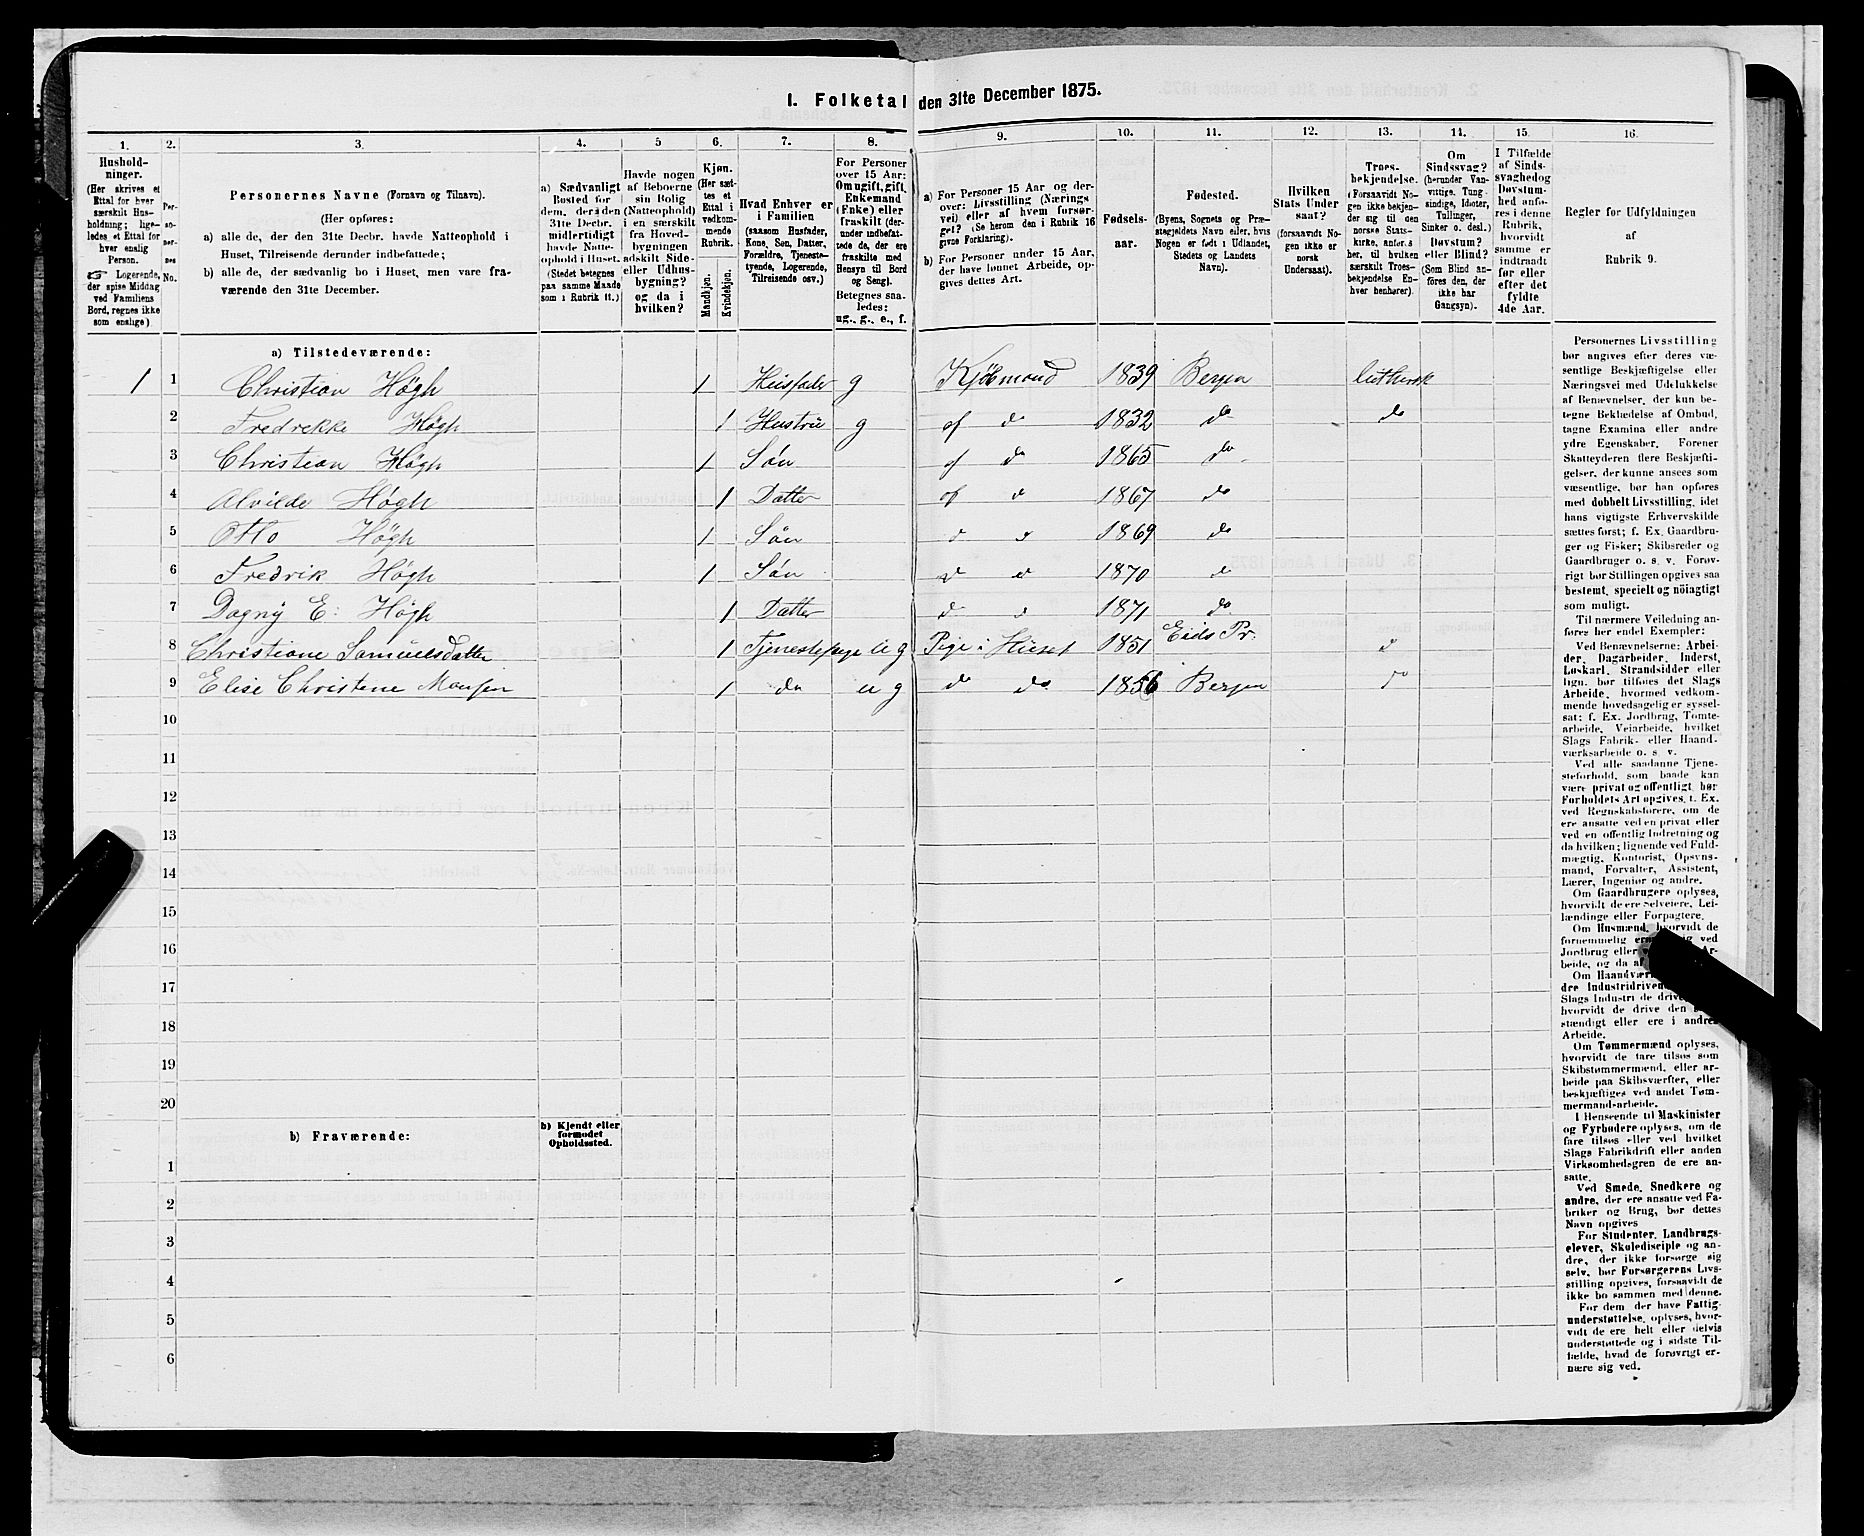 I. Folketal den 31te December 1875.
1. 2. 3. 4. 5 6. 7. 8. 9. 10. 11. 12. 13. 14. 15 16.
Hushold-
ninger.
(Her skrives et
Ettal for hver
særskilt Hus-
holdning; lige-
ledes et Ettal for
hver enslig
Person.
☞ Logerende,
der spise Middag
ved Familiens
Bord, regnes ikke
som enslige)
Per-
so-
ner-
nes
No.
Personernes Navne (Fornavn og Tilnavn).
(Her opføres:
a) alle de, der den 31te Decbr. havde Natteophold i
Huset, Tilreisende derunder indbefattede;
b) alle de, der sædvanlig bo i Huset, men vare fra-
værende den 31te December.
a) Sædvanligt
Bosted for
dem, der den
31te Decbr.
midlertidigt
havde Natte-
ophold i Huset.
(Stedet betegnes
paa samme Maade
som i Rubrik 11.)
Havde nogen
af Beboerne
sin Bolig
(Natteophold)
i en særskilt
fra Hoved-
bygningen
adskilt Side-
eller Udhus-
bygning?
og da i
hvilken?
Kjøn.
(Her sæt-
tes et
Ettal i
vedkom-
mende
Rubrik.
Mandkjøn.
Kvindekjøn.
Hvad Enhver er
i Familien
(saasom Husfader,
Kone, Søn, Datter,
Forældre, Tjeneste-
tyende, Logerende,
Tilreisende osv.)
For Personer
over 15 Aar:
Om ugift, gift,
Enkemand
(Enke) eller
fraskilt (der-
under indbefat-
tede de, der ere
fraskilte med
Hensyn til Bord
og Seng).
Betegnes saa-
ledes:
ug., g., e., f.
a) For Personer 15 Aar og der-
over: Livsstilling (Nærings
vei) eller af hvem forsør-
get? (Se herom den i Rubrik 16
givne Forklaring).
b) For Personer under 15 Aar,
der have lønnet Arbeide, op-
gives dettes Art.
Fødsels-
aar.
Fødested.
(Byens, Sognets og Præ-
stegjeldets Navn eller, hvis
Nogen er født i Udlandet,
Stedets og Landets
Navn).
Hvilken
Stats Under
saat?
(forsaavidt No-
gen ikke er
norsk
Undersaat).
Troes-
bekjendelse.
(Forsaavidt No-
gen ikke bekjen-
der sig til den
norske Stats-
kirke, anføres
her, til hvilken
særskilt Troes-
bekjendelse En-
hver henhører).
Om
Sindssvag?
(herunder Van-
vittige, Tung-
sindige, Idioter,
Tullinger,
Sinker o. desl.)
Døvstum?
eller Blind?
(Som Blind an-
føres den, der
ikke har
Gangsyn).
I Tilfælde
af Sinds-
svaghed og
Døvstum-
hed anfø-
res i denne
Rubrik,
hvorvidt
samme er
indtraadt
før eller
efter det
fyldte
4de Aar.
Regler for Udfyldningen
af
Rubrik 9.
a) Tilstedeværende:
1 1 Christian Högh 1 Husfader g Kjöbmand 1839 Bergen luthersk
2 Fredrikke Högh 1 Hustru g af do 1832 do do
3 Christian Högh 1 Sön af do 1865 do
4 Alvilde Högh 1 Datter af d 1867 do
5 Otto Högh 1 Sön d d 1869 do
6 Fredrik Högh 1 Sön d d 1870 d
7 Dagny E. Högh 1 Datter d d 1871 do
8 Christiane Samuelsdatter 1 Tjenestepige ug Pige i Huset 1851 Eids Pr. d
9 Elise Christene Monsen 1 do ug d do 1856 Bergen do
10
11
12
13
14
15
16
17
18
19
20
b) Fraværende:
b) Kjendt eller
formodet
Opholdssted.
1
2
3
4
5
6
Personernes Livsstilling
bør angives efter deres væ-
sentlige Beskjæftigelse eller
Næringsvei med Udelukkelse
af Benævnelser, der kun be-
tegne Beklædelse af Ombud,
tagne Examina eller andre
ydre Egenskaber. Forener
Skatteyderen flere Beskjæfti-
gelser, der kunne ansees som
væsentlige, bør han opføres
med dobbelt Livsstilling, idet
hans vigtigste Erhvervskilde
sættes først; f. Ex. Gaardbru-
ger og Fisker; Skibsreder og
Gaardbruger o. s. v. Forøv-
rigt bør Stillingen opgives saa
bestemt, specielt og nöiagtigt
som muligt.
Til nærmere Veiledning an-
føres her endel Exempler:
Ved Benævnelserne: Arbei-
der, Dagarbeider, Inderst,
Løskarl, Strandsidder eller
lign. bør tilføies det Slags
Arbeide, hvormed vedkom-
mende hovedsagelig er syssel-
sat; f. Ex. Jordbrug, Tomte-
arbeide, Veiarbeide, hvilket
Slags Fabrik- eller Haand-
værksarbeide o. s. v.
Ved alle saadanne Tjene-
steforhold, som baade kan
være privat og offentligt, bør
Forholdets Art opgives, t. Ex.
ved Regnskabsførere, om de
ere ansatte ved en privat eller
ved en offentlig Indretning og
da hvilken; lignende ved Fuld-
mægtig, Kontorist, Opsyns-
mand, Forvalter, Assistent,
Lærer, Ingeniør og andre.
Om Gaardbrugere oplyses,
hvorvidt de ere Selveiere, Lei-
lændinge eller Forpagtere.
Om Husmænd, hvorvidt de
fornemmelig ere sig ved
Jordbrug eller Ar-
beide, og da af
Om Haandvær
dre Industridriven
Slags Industri de drive
hvorvidt de drive den
stændigt eller ere i andres
Arbeide.
Om Tømmermænd oplyses,
hvorvidt de fare tilsøs som
Skibstømmermænd, eller ar-
beide paa Skibsværfter, eller
beskjæftiges ved andet Tøm-
mermand-arbeide.
I Henseende til Maskinister
og Fyrbødere oplyses, om de
fare tilsøs eller ved hvilket
Slags Fabrikdrift eller anden
Virksomhedsgren de ere an-
satte.
Ved Smede, Snedkere og
andre, der ere ansatte ved Fa-
briker og Brug, bør dettes
Navn opgives
For Studenter, Landbrugs-
elever, Skoledisciple og an-
dre, der ikke forsørge sig
selv, bør Forsørgerens Livs-
stilling opgives, forsaavidt de
ikke bo sammen med denne.
For dem der have Fattig-
understøttelse, oplyses, hvor-
vidt de ere helt eller delvis
understøttede og i sidste Til-
fælde, hvad de forøvrigt er-
nære sig ved.